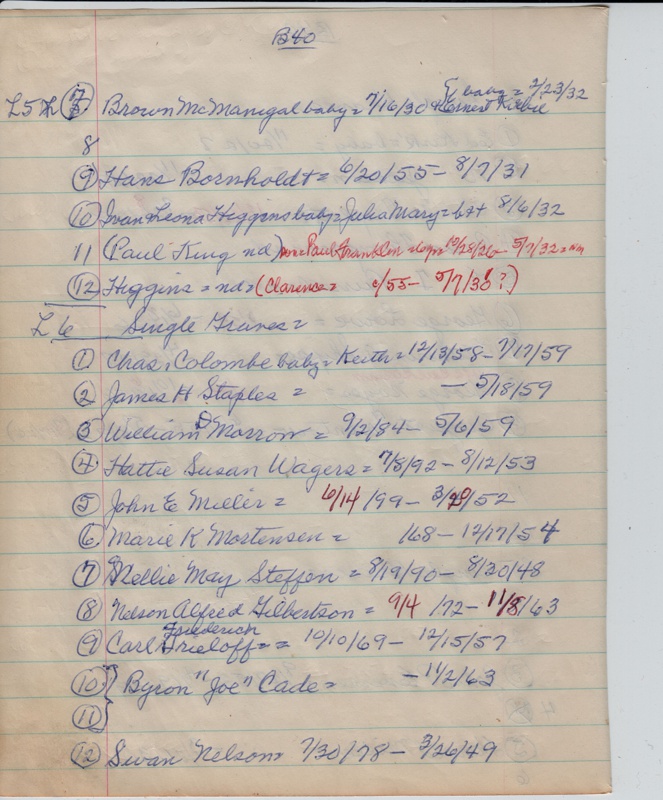 B40
{ baby = 2/23/32
L5 (7) Brown McManigal baby = 7/16/30 & Ernest
8
(9) Hans Bornholdt = 6/20/55 - 8/7/31
(10) Ivan & Leona Higgins baby = Julia Mary = b++ 8/6/32
11 (Paul King nd) Paul Franklin = 10/28/26 - 5/7/32 =
(12) Higgins = nd = (Clarence = c/55 - 5/7/36 ?)
L6 Single Graves =
(1) Chas. Colombe baby = Keith = 12/13/58 - 7/17/59
(2) James H Staples = - 5/18/59
(3) William D Morrow = 9/2/84 - 5/6/59
(4) Hattie Susan Wagers = 7/8/92 - 8/12/53
(5) John E Miller = 6/14/99 - /52
(6) Marie K Mortensen = 168 - 12/17/54
(7) Nellie May Steffen = 8/19/90 - 8/20/48
(8) Nelson Alfred Gilbertson = 9/4/72 - 11/8/63
Friederich
(9) Carl Drieloff = = 10/10/69 - 12/15/57
(10) } Byron "Joe" Cade = - 11/2/63
(11)
(12) Swan Nelson = 7/30/78 - 3/26/49